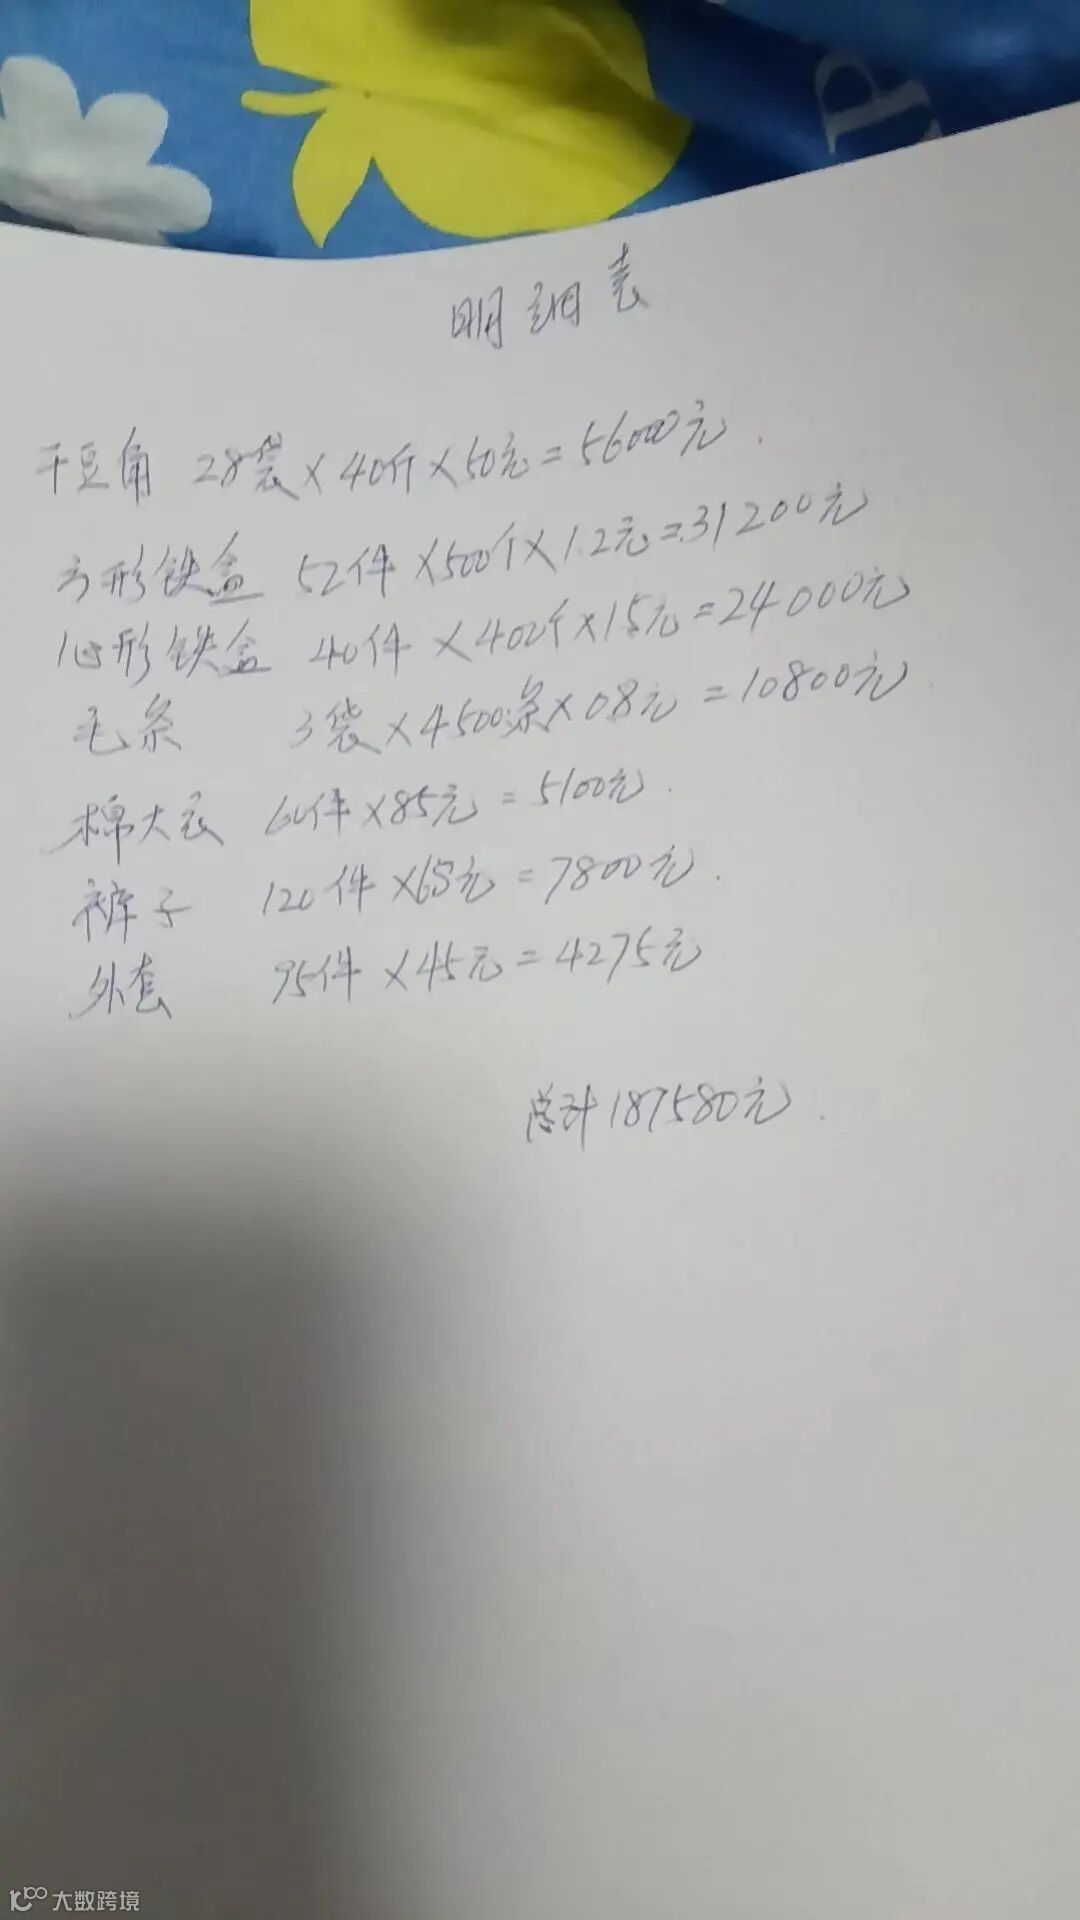 明细表
干豆角 28袋×40斤×50元=56000元.
方形铁盒 52件×500个×1.2元=31200元
心形铁盒 40件×400个×1.5元=24000元
毛条 3袋×4500条×0.8元=10800元
棉大衣 60件×85元=5100元.
裤子 120件×65元=7800元.
外套 95件×45元=4275元
总计187580元.
大数跨境